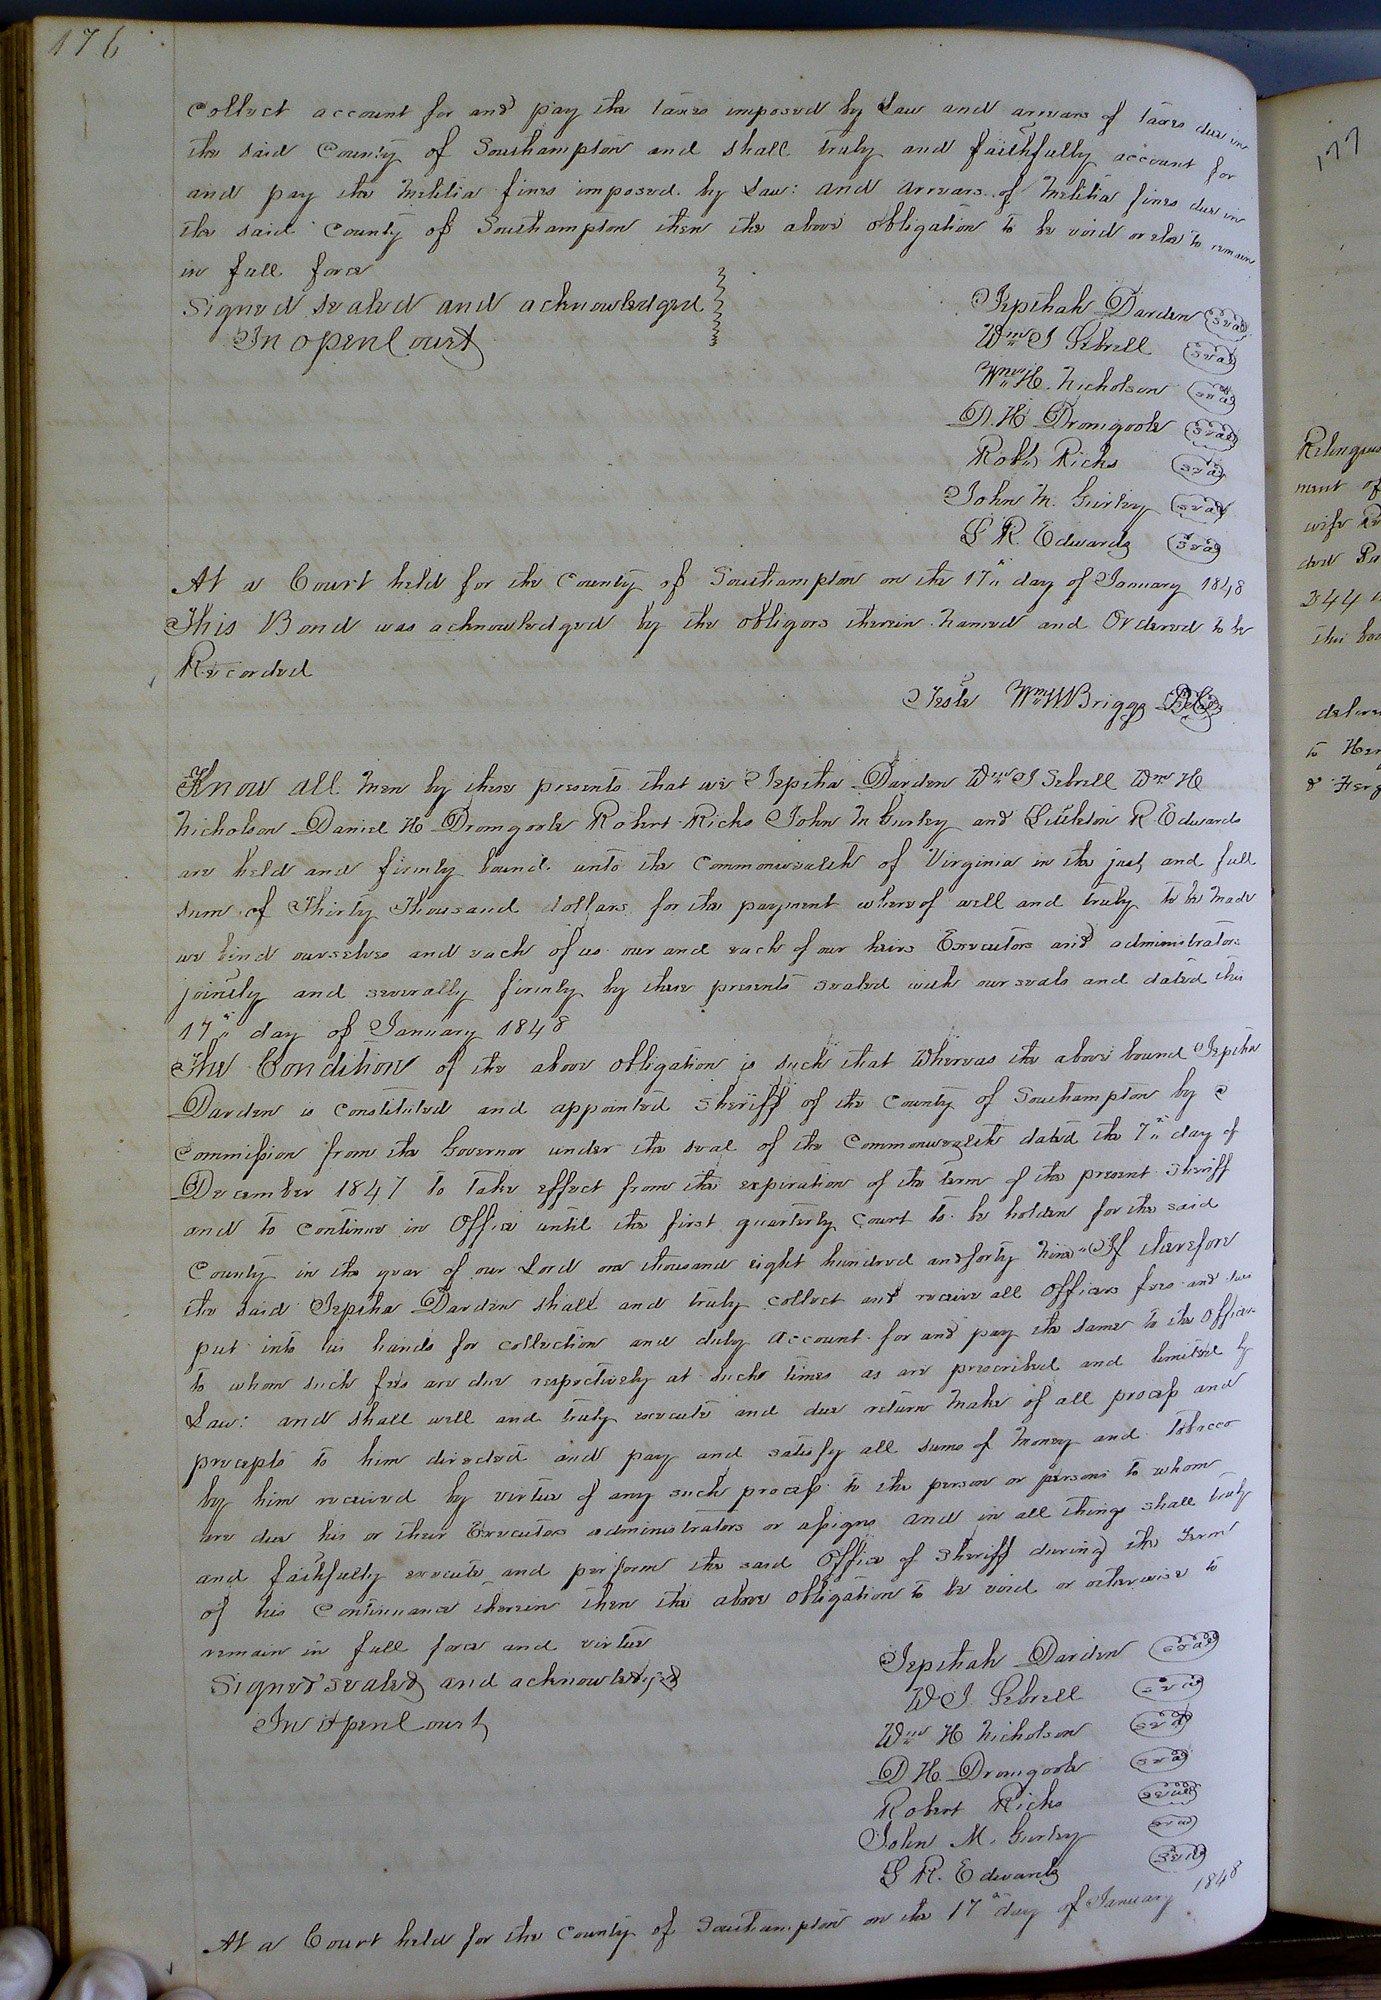 176
collect account for and pay the taxes imposed by Law and arrears of taxes due in
the said County of Southampton and shall truly and faithfully account for
and pay the Militia fines imposed by Law: and arrears of Militia fines due in
the said County of Southampton then the above obligation to be void or else to remain
in full force
Signed sealed and acknowledged
In open Court
Jepthah Darden seal
Wm J Sebrell seal
Wm H. Nicholson seal
D. H Dromgoole seal
Robt Ricks seal
John M. Gurley seal
L R. Edwards seal
At a Court held for the County of Southampton on the 17th day of January 1848
This Bond was acknowledged by the obligors therein named and Ordered to be
Recorded
Teste Wm W Briggs D.C.
Know all Men by these presents that we Jeptha Darden Wm J Sebrell Wm H
Nicholson Daniel H Dromgoole Robert Ricks John M Gurley and Littleton R. Edwards
are held and firmly bound unto the Commonwealth of Virginia in the just and full
sum of Thirty Thousand dollars for the payment whereof well and truly to be made
we bind ourselves and each of us our and each of our heirs Executors and administrators
jointly and severally firmly by these presents sealed with our seals and dated this
17th day of January 1848
The Condition of the above obligation is such that Whereas the above bound Jeptha
Darden is constituted and appointed Sheriff of the County of Southampton by a
Commission from the Governor under the seal of the Commonwealth dated the 7th day of
December 1847 to take effect from the expiration of the term of the present Sheriff
and to continue in Office until the first quarterly Court to be holden for the said
County in the year of our Lord one thousand eight hundred and forty Nine If therefore
the said Jeptha Darden shall and truly collect and receive all Officers fees and dues
put into his hands for collection and duly account for and pay the same to the Officers
to whom such fees are due respectively at such times as are prescribed and limited by
Law: and shall well and truly execute and due return make of all process and
precepts to him directed and pay and satisfy all sums of Money and Tobacco
by him received by virtue of any such process to the person or persons to whom
are due his or their Executors administrators or assigns and in all things shall truly
and faithfully execute and perform the said Office of Sheriff during the term
of his Continuance therein then the above obligation to be void or otherwise to
remain in full force and virtue
Signed sealed and acknowledged
In open Court
Jepthah Darden seal
W J Sebrell seal
Wm H Nicholson seal
D H. Dromgoole seal
Robert Ricks seal
John M. Gurley seal
L R. Edwards seal
At a Court held for the County of Southampton on the 17th day of January 1848
177
ment of
wife
344
this
to